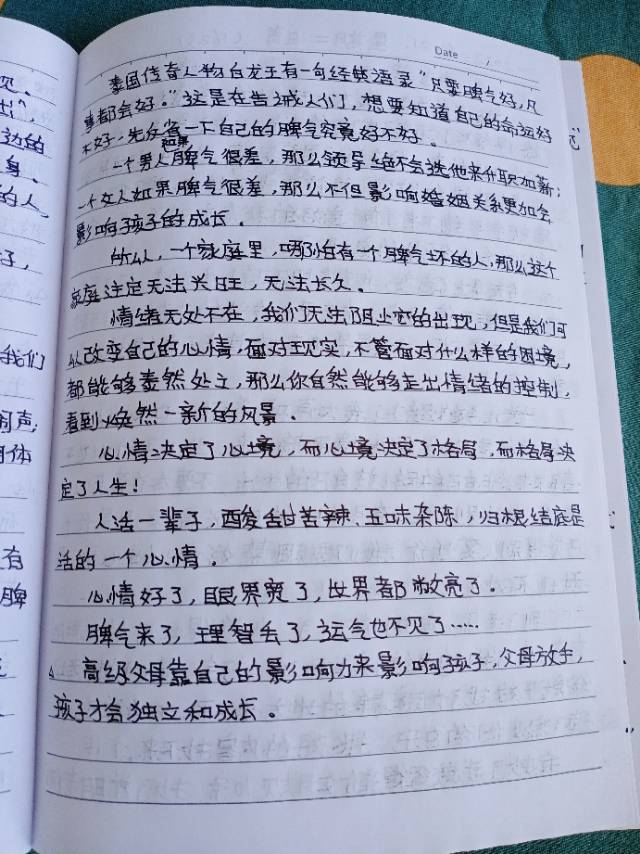 见。
出",
边的
身。
的人,
子,
我们
闹声,
身体
有
脾
Date
泰国传奇人物白龙王有一句经典语录"只要脾气好,凡
事都会好。"这是在告诫人们,想要知道自己的命运好
不好,先反省一下自己的脾气究竟好不好。
一个男人脾气很差,那么领导绝不会选他来升职加薪;
一个女人如果脾气很差,那么不但影响婚姻关系更加会
影响孩子的成长。
所以,一个家庭里,哪怕有一个脾气坏的人,那么这个
家庭注定无法兴旺,无法长久。
情绪无处不在,我们无法阻止它的出现,但是我们可
以改变自己的心情,面对现实,不管面对什么样的困境,
都能够泰然处之,那么你自然能够走出情绪的控制,
看到焕然一新的风景。
心情决定了心境,而心境决定了格局,而格局决
定了人生!
人活一辈子,酸甜苦辣、五味杂陈,归根结底是
活的一个心情。
心情好了,眼界宽了,世界都敞亮了。
脾气来了,理智丢了,运气也不见了……
高级父母靠自己的影响力来影响孩子,父母放手,
孩子才会独立和成长。